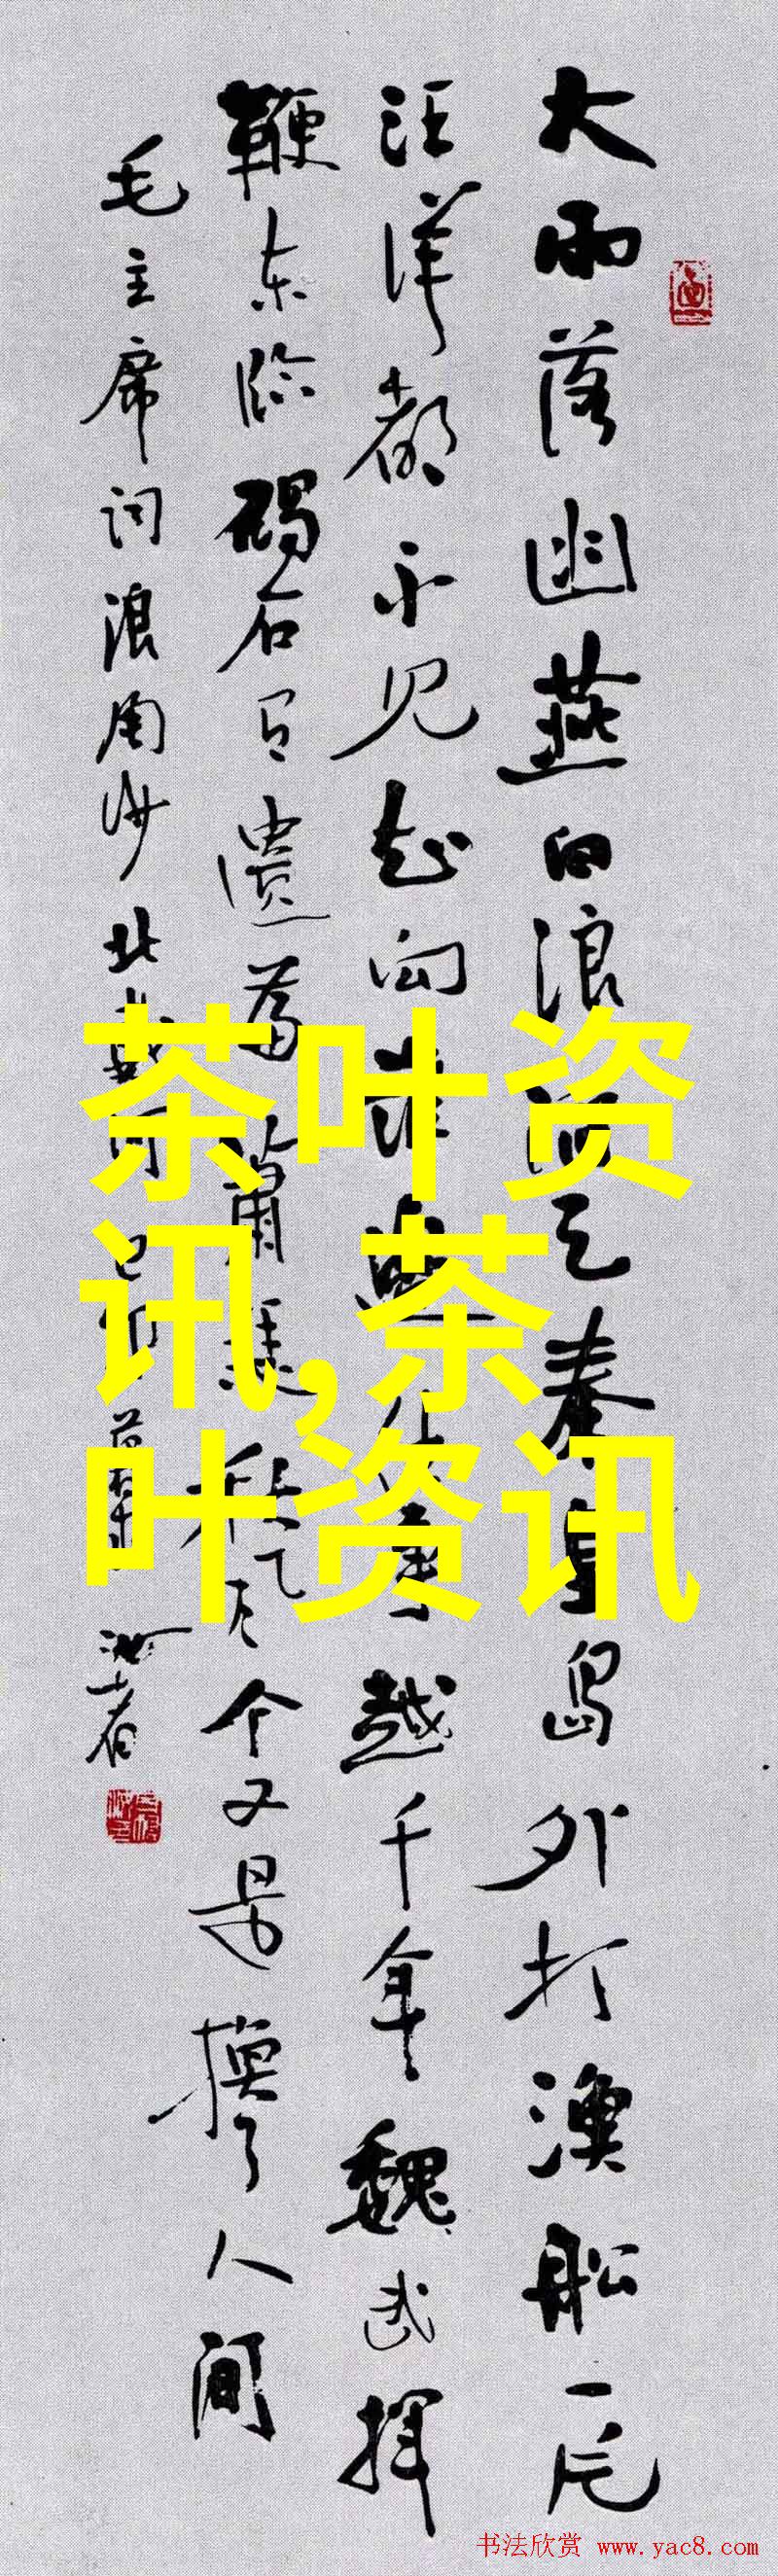 大雨落幽燕白浪滔天秦皇岛外打渔船一片
汪洋都不见知向谁边往事越千年魏武挥
鞭东临碣石有遗篇萧瑟秋风今又是换了人间
毛主席词浪淘沙北戴河己卯
茶叶资
讯,茶
叶资讯
书法欣赏 www.yac8.com